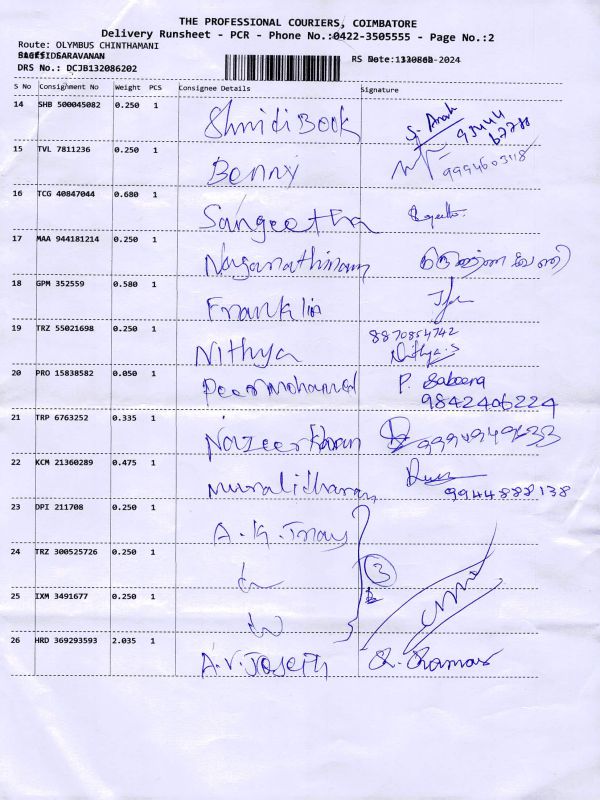 THE PROFESSIONAL COURIERS, COIMBATORE
Delivery Runsheet - PCR - Phone No.:0422-3505555 - Page No.:2
Route: OLYMBUS CHINTHAMANI
SARAVANAN
RS Date: -2024
DRS No.: DCJB132086202
S No Consignment No Weight PCS Consignee Details Signature
14 SHB 500045082 0.250 1 Shridi Book S. Anah 93444 67788
15 TVL 7811236 0.250 1 Benny 9994603118
16 TCG 40847044 0.680 1 Sangeetha
17 MAA 944181214 0.250 1 Naganathinam
18 GPM 352559 0.580 1 Franklin
19 TRZ 55021698 0.250 1 Nithya 8870854742 Nithya.S
20 PRO 15838582 0.050 1 Peer Mohamed P. Saboora 9842406224
21 TRP 6763252 0.335 1 Nazeer Khan 9994949633
22 KCM 21360289 0.475 1 Muralidharan 9944888138
23 DPI 211708 0.250 1 A.K.
24 TRZ 300525726 0.250 1 3
25 IXM 3491677 0.250 1
26 HRD 369293593 2.035 1 A.V. Joseph